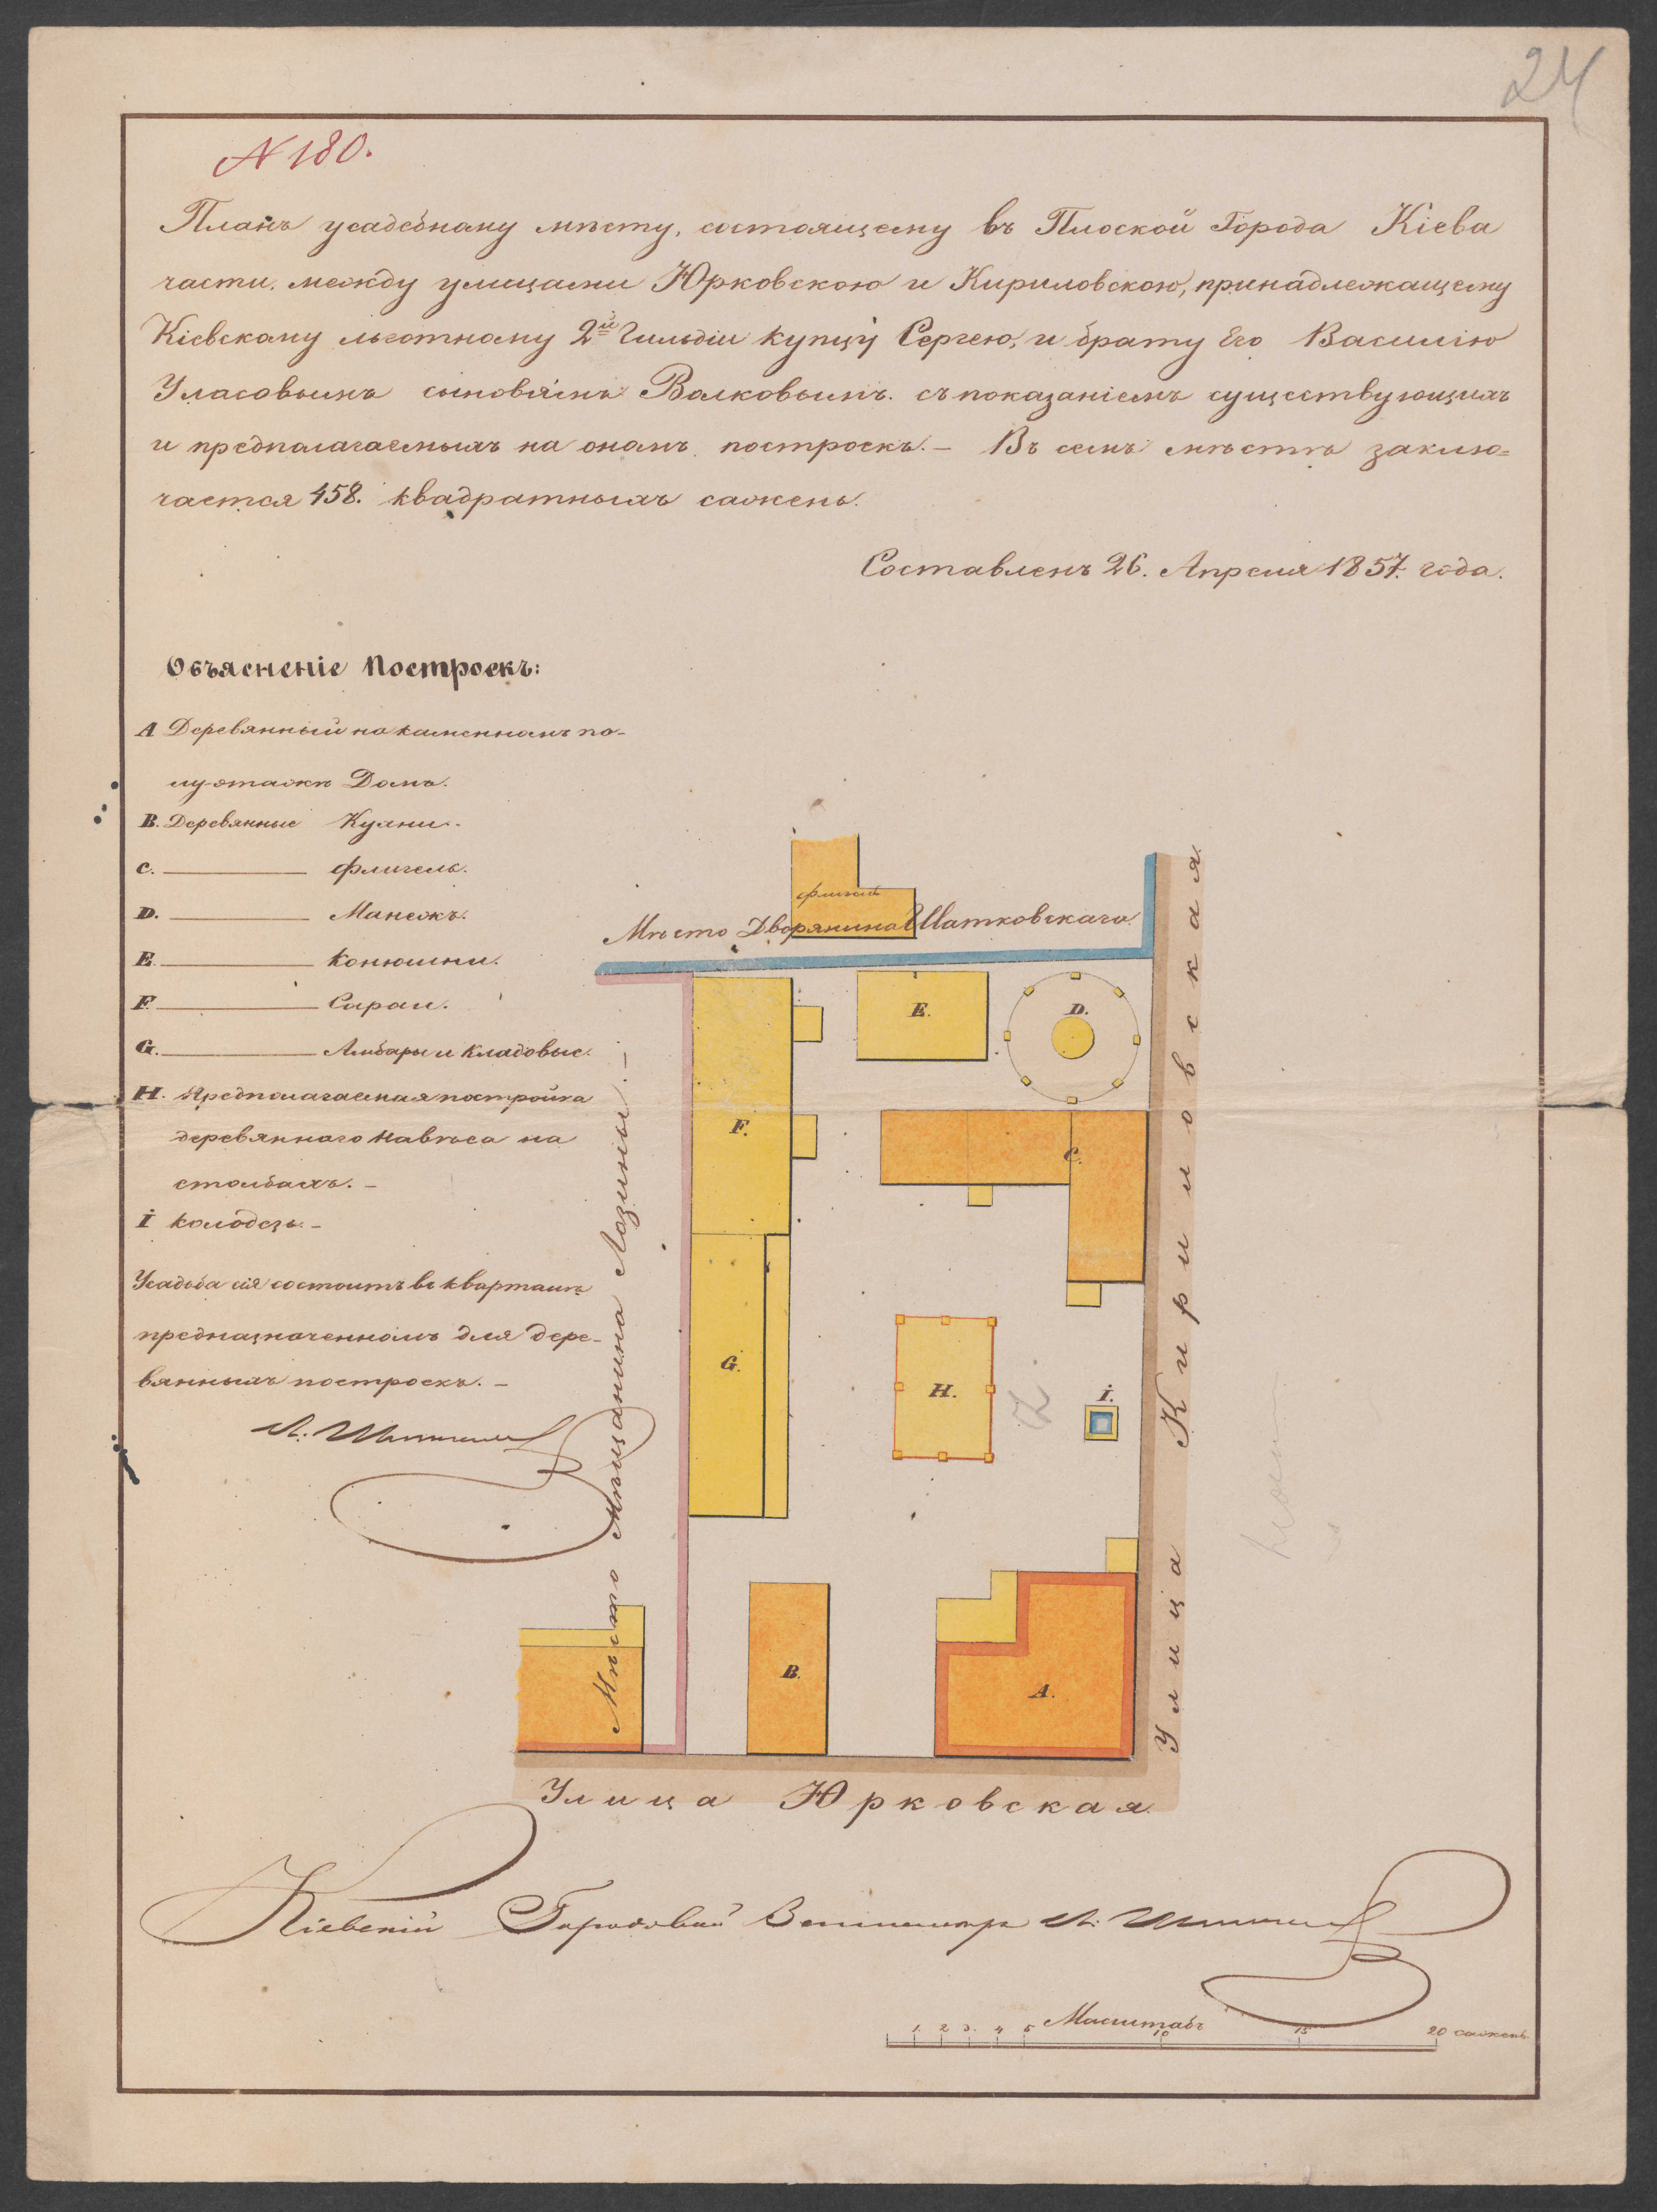 24
N 180.
Планъ усадебному мѣсту, состоящему въ Плоской Города Кіева
части, между улицами Юрковскою и Кириловскою, принадлежащему
Кіевскому льготному 2й Гильдіи купцу Сергею, и брату Его Василію
Уласовымъ сыновямъ Волковымъ. съ показаніемъ существующихъ
и предполагаемыхъ на ономъ построекъ. — Въ семъ мѣстѣ заклю=
чается 458. квадратныхъ сажень.
Составленъ 26. Апреля 1857. года.
Объясненіе Построекъ:
A Деревянный на каменномъ по-
лу-этажѣ Домъ.
B. Деревянные Кухни.
C. ——— флигель.
D. ——— Манежъ.
E. ——— Конюшни.
F. ——— Сараи.
G. ——— Амбары и Кладовые.
H. Предполагаемая постройка
деревяннаго Навѣса на
столбахъ. —
İ колодезь. —
Усадьба сія состоитъ въ кварталѣ
предназначенномъ для дере-
вянныхъ построекъ. —
флигель
Мѣсто Дворянина Шатковскаго
E.
D.
F.
C.
G.
H.
İ.
B.
A.
Мѣсто Мѣщанина Лозины. —
Улица Кириловская.
Улица Юрковская.
Кіевскій Городовой
Масштабъ
1 2 3. 4 5 10 15 20 сажень.